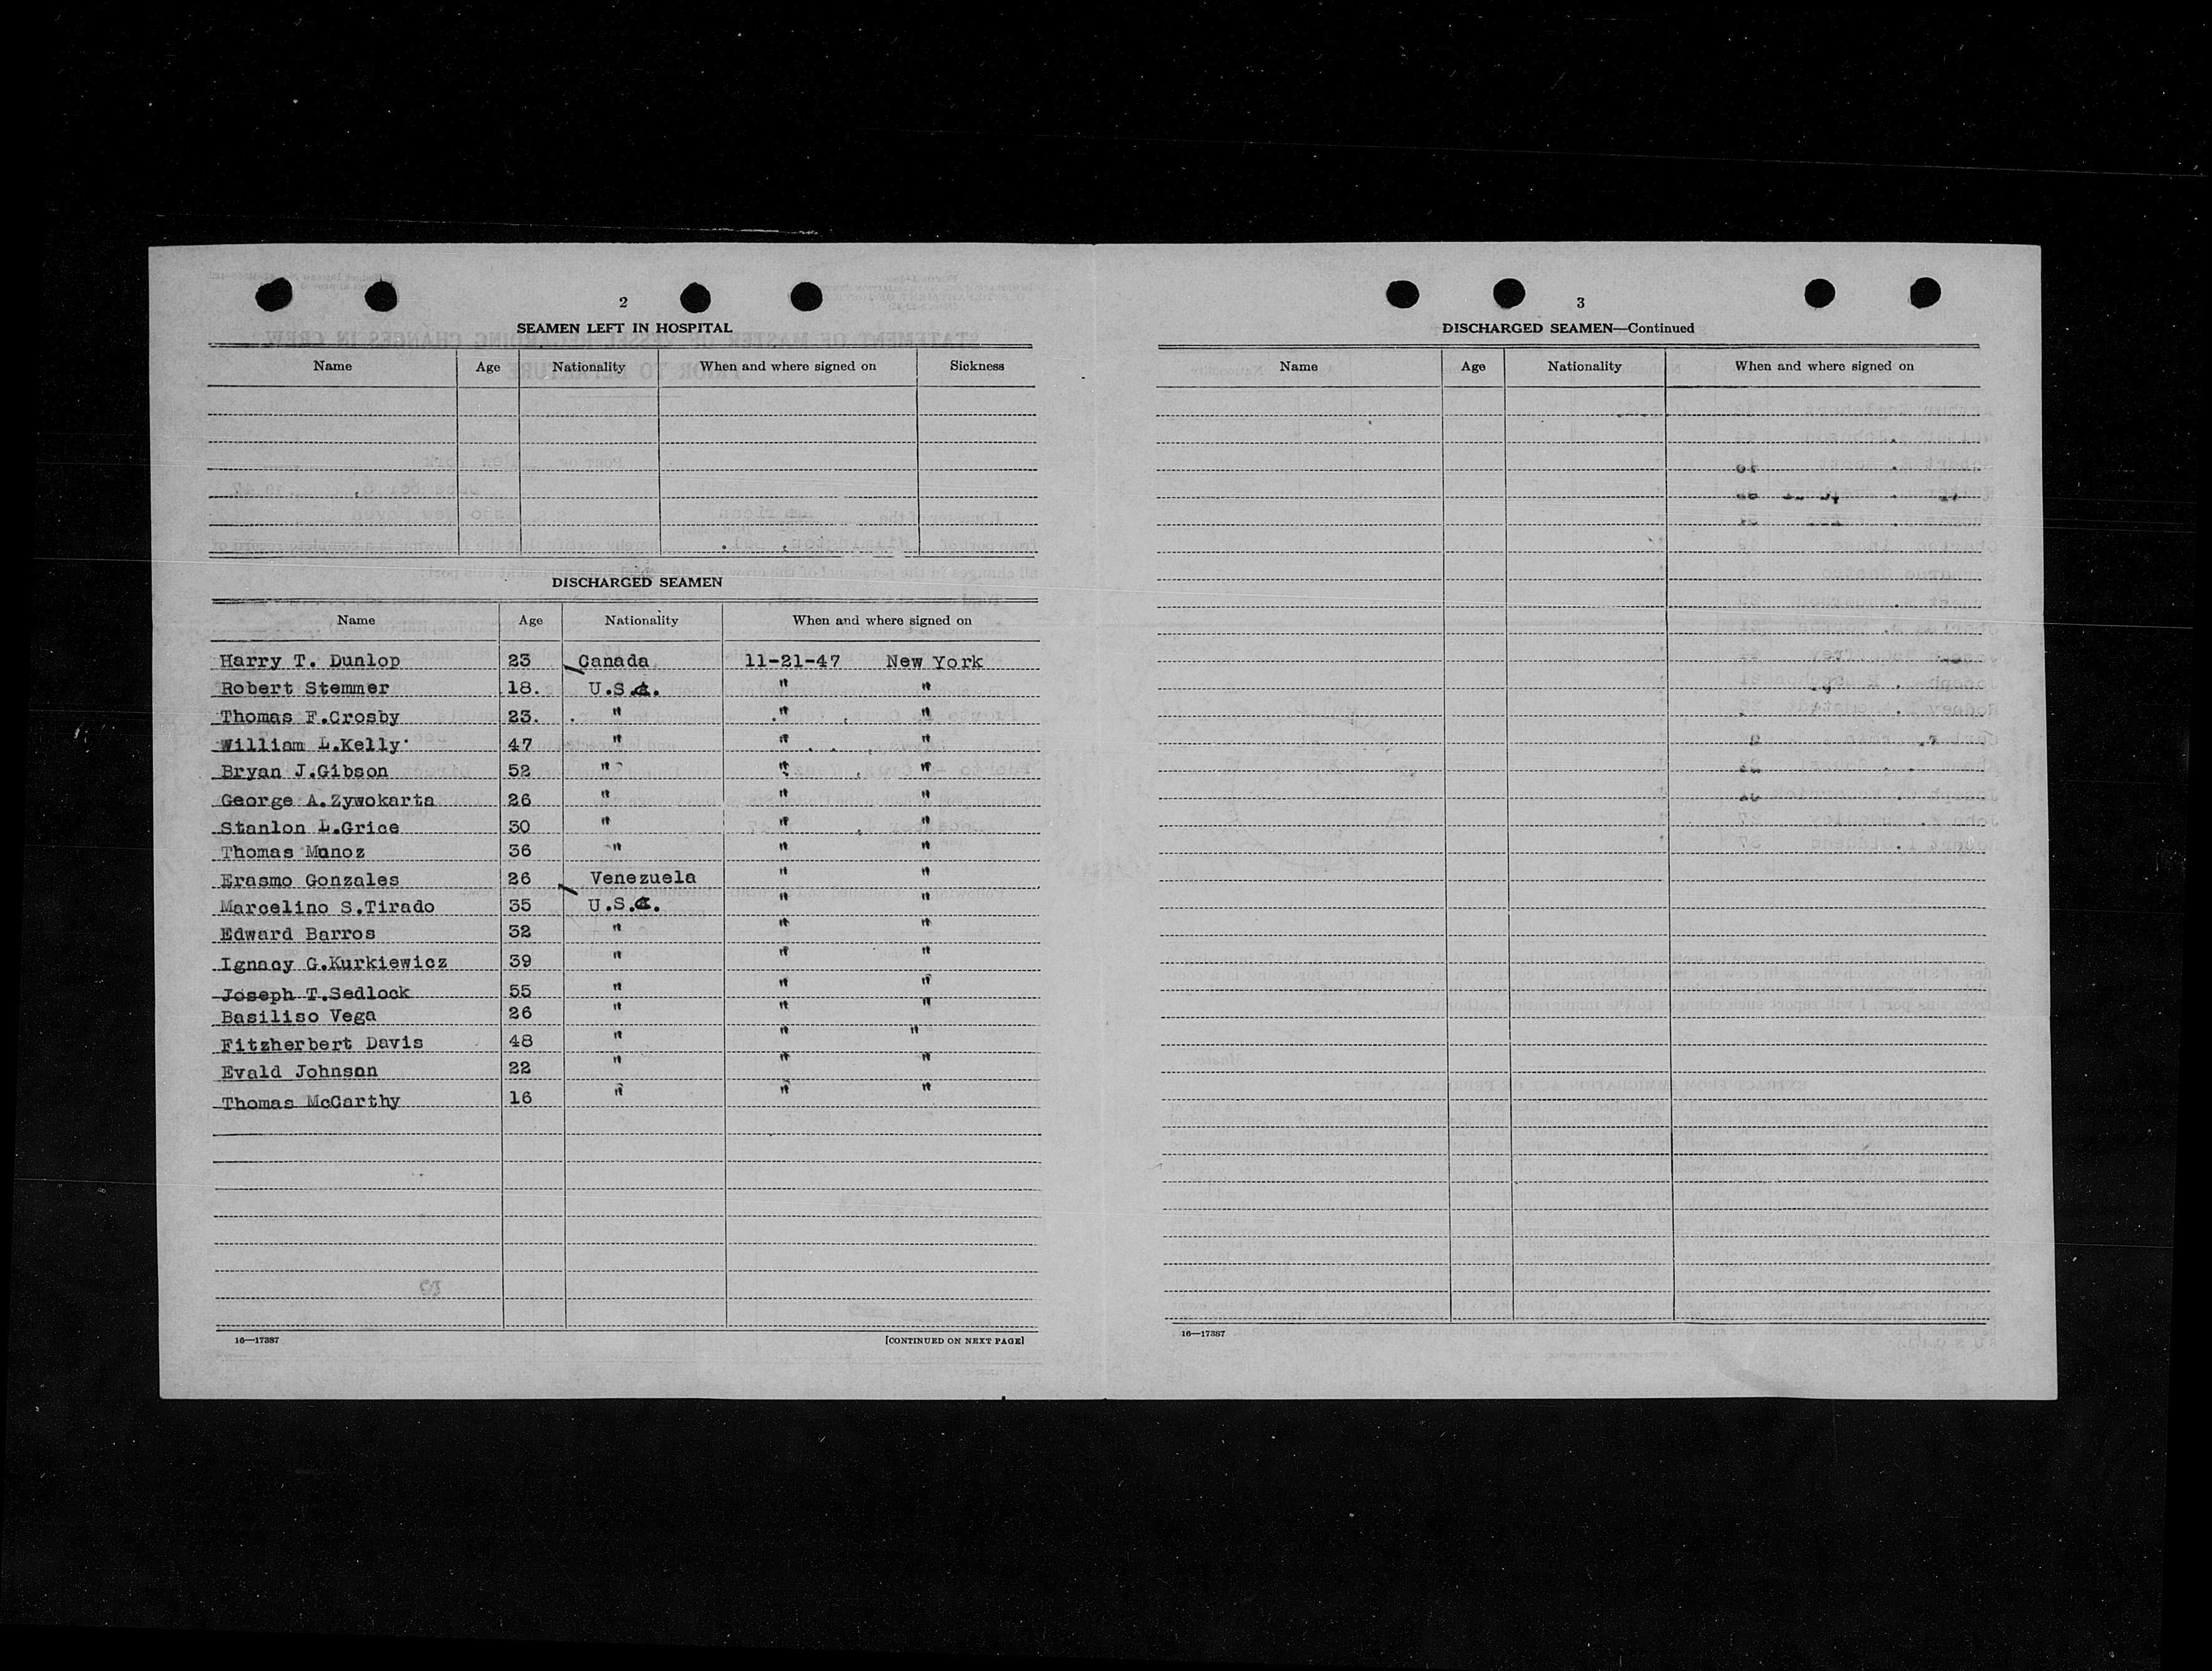 2
SEAMEN LEFT IN HOSPITAL
Name Age Nationality When and where signed on Sickness
DISCHARGED SEAMEN
Name Age Nationality When and where signed on
Harry T. Dunlop 23 Canada 11-21-47 New York
Robert Stemmer 18. U.S.A. " "
Thomas F.Crosby 23. " " "
William L.Kelly 47 " " "
Bryan J.Gibson 52 " " "
George A.Zywokarta 26 " " "
Stanlon L.Grice 30 " " "
Thomas Munoz 36 " " "
Erasmo Gonzales 26 Venezuela " "
Marcelino S.Tirado 35 U.S.A. " "
Edward Barros 32 " " "
Ignacy G.Kurkiewicz 39 " " "
Joseph T.Sedlock 55 " " "
Basiliso Vega 26 " " "
Fitzherbert Davis 48 " " "
Evald Johnson 22 " " "
Thomas McCarthy 16 " " "
16—17387 [CONTINUED ON NEXT PAGE]
3
DISCHARGED SEAMEN—Continued
Name Age Nationality When and where signed on
16—17387